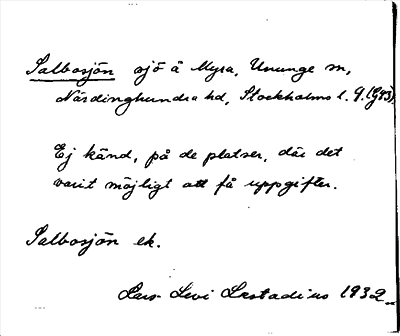 Salbosjön sjö å Myra, Ununge sn,
Närdinghundra hd, Stockholms l. 9.(G93)
Ej känd, på de platser, där det
varit möjligt att få uppgifter.
Salbosjön ek.
Lars Levi Læstadius 1932